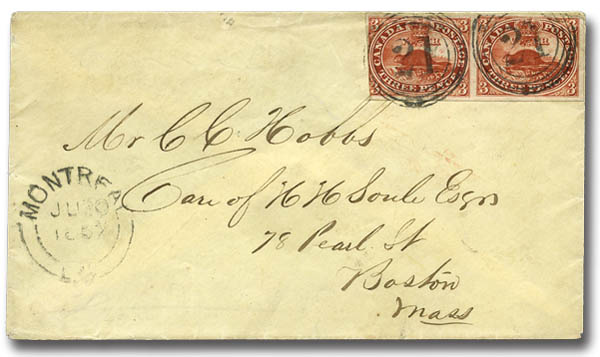 3 CANADA POSTAGE 3
21
3 THREE PENCE 3
3 CANADA POSTAGE 3
21
3 THREE PENCE 3
Mr C. C. Hobbs
Care of H H Soule Esqr
78 Pearl St
Boston
Mass
MONTREA
JU 20
185
L.C